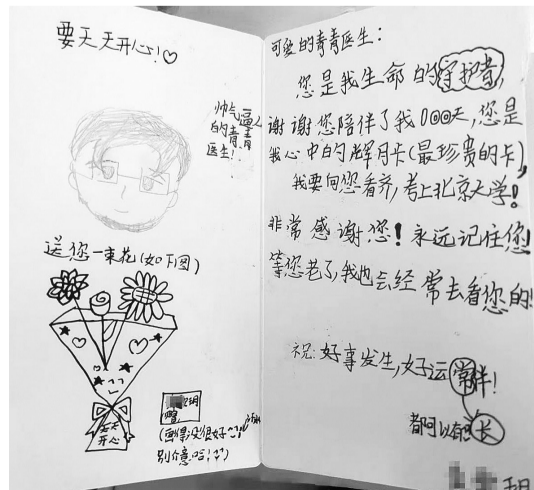 要天天开心!♡
帅气逼人
的青青
医生!
送您一束花(如下图)
天天
开心
(画得没很好
别介意哈!
可爱的青青医生:
您是我生命的守护者,
谢谢您陪伴了我1000天,您是
我心中的辉月卡(最珍贵的卡),
我要向您看齐,考上北京大学!
非常感谢您!永远记住您!
等您老了,我也会经常去看您的!
祝:好事发生,好运常伴!
都可以
长